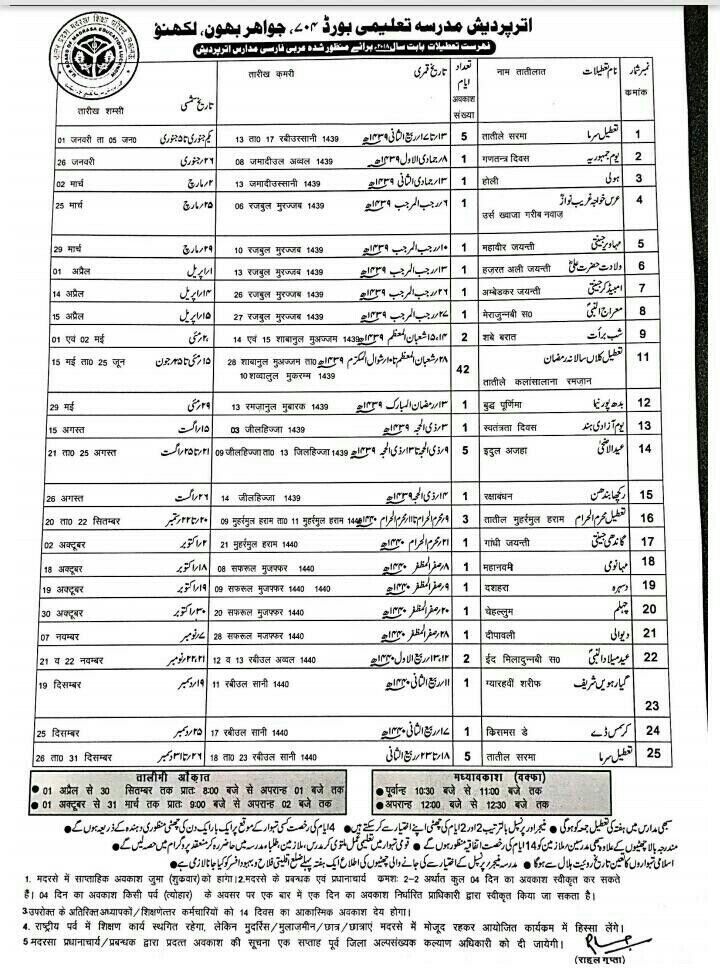 اترپردیش مدرسہ تعلیمی بورڈ ۷۰۴، جواہر بھون، لکھنؤ
فہرست تعطیلات بابت سال ۲۰۱۸ء برائے منظور شدہ عربی فارسی مدارس اترپردیش
نمبر شمار कमांक نام تعطیلات नाम तातीलात تعداد ایام अवकाश संख्या تاریخ قمری तारीख कमरी تاریخ شمسی तारीख शम्सी
1 تعطیل سرما तातीले सरमा 5 ۱۳ تا ۱۷ ربیع الثانی ۱۴۳۹ھ 13 ता0 17 रबीउस्सानी 1439 یکم جنوری تا ۵ جنوری 01 जनवरी ता 05 जन0
2 یوم جمہوریہ गणतन्त्र दिवस 1 ۸ جمادی الاول ۱۴۳۹ھ 08 जमादीउल अव्वल 1439 ۲۶ جنوری 26 जनवरी
3 ہولی होली 1 ۱۳ جمادی الثانی ۱۴۳۹ھ 13 जमादीउस्सानी 1439 ۲ مارچ 02 मार्च
4 عرس خواجہ غریب نوازؒ उर्स ख्वाजा गरीब नवाज 1 ۶ رجب المرجب ۱۴۳۹ھ 06 रजबुल मुरज्जब 1439 ۲۵ مارچ 25 मार्च
5 مہاویر جینتی महावीर जयन्ती 1 ۱۰ رجب المرجب ۱۴۳۹ھ 10 रजबुल मुरज्जब 1439 ۲۹ مارچ 29 मार्च
6 ولادت حضرت علیؓ हज़रत अली जयन्ती 1 ۱۳ رجب المرجب ۱۴۳۹ھ 13 रजबुल मुरज्जब 1439 ۱ اپریل 01 अप्रैल
7 امبیڈکر جینتی अम्बेडकर जयन्ती 1 ۲۶ رجب المرجب ۱۴۳۹ھ 26 रजबुल मुरज्जब 1439 ۱۴ اپریل 14 अप्रैल
8 معراج النبیؐ मेराजुन्नबी स0 1 ۲۷ رجب المرجب ۱۴۳۹ھ 27 रजबुल मुरज्जब 1439 ۱۵ اپریل 15 अप्रैल
9 شب برأت शबे बरात 2 ۱۴، ۱۵ شعبان المعظم ۱۴۳۹ھ 14 एवं 15 शाबानुल मुअज्जम 1439 ۲ مئی 01 एवं 02 मई
11 تعطیل کلاں سالانہ رمضان तातीले कलांसालाना रमज़ान 42 ۲۸ شعبان المعظم تا ۱۰ شوال المکرم ۱۴۳۹ھ 28 शाबानुल मुअज्जम ता0 10 शव्वालुल मुकरम्म 1439 ۱۵ مئی تا ۲۵ جون 15 मई ता0 25 जून
12 بدھ پورنیما बुद्ध पूर्णिमा 1 ۱۳ رمضان المبارک ۱۴۳۹ھ 13 रमज़ानुल मुबारक 1439 ۲۹ مئی 29 मई
13 یوم آزادی ہند स्वतंत्रता दिवस 1 ۳ ذی الحجہ ۱۴۳۹ھ 03 जीलहिज्जा 1439 ۱۵ اگست 15 अगस्त
14 عید الاضحیٰ इदुल अजहा 5 ۹ ذی الحجہ تا ۱۳ ذی الحجہ ۱۴۳۹ھ 09 जीलहिज्जा ता0 13 जिलहिज्जा 1439 ۲۱ تا ۲۵ اگست 21 ता0 25 अगस्त
15 رکچھا بندھن रक्षाबंधन 1 ۱۴ ذی الحجہ ۱۴۳۹ھ 14 जीलहिज्जा 1439 ۲۶ اگست 26 अगस्त
16 تعطیل محرم الحرام तातील मुहर्रमुल हराम 3 ۹ محرم الحرام تا ۱۱ محرم الحرام ۱۴۴۰ھ 09 मुहर्रमुल हराम ता0 11 मुहर्रमुल हराम 1440 ۲۰ تا ۲۲ ستمبر 20 ता0 22 सितम्बर
17 گاندھی جینتی गांधी जयन्ती 1 ۲۱ محرم الحرام ۱۴۴۰ھ 21 मुहर्रमुल हराम 1440 ۲ اکتوبر 02 अक्टूबर
18 مہانومی महानवमी 1 ۸ صفر المظفر ۱۴۴۰ھ 08 सफरूल मुजफ्फर 1440 ۱۸ اکتوبر 18 अक्टूबर
19 دسہرہ दशहरा 1 ۹ صفر المظفر ۱۴۴۰ھ 09 सफरूल मुजफ्फर 1440 1440 ۱۹ اکتوبر 19 अक्टूबर
20 چہلم चेहल्लुम 1 ۲۰ صفر المظفر ۱۴۴۰ھ 20 सफरूल मुजफ्फर 1440 ۳۰ اکتوبر 30 अक्टूबर
21 دیوالی दीपावली 1 ۲۸ صفر المظفر ۱۴۴۰ھ 28 सफरूल मजफ्फर 1440 ۷ نومبر 07 नवम्बर
22 عید میلاد النبیؐ ईद मिलादुन्नबी स0 2 ۱۲، ۱۳ ربیع الاول ۱۴۴۰ھ 12 व 13 रबीउल अव्वल 1440 ۲۱، ۲۲ نومبر 21 व 22 नवम्बर
23 گیارہویں شریف ग्यारहवीं शरीफ 1 ۱۱ ربیع الثانی ۱۴۴۰ھ 11 रबीउल सानी 1440 ۱۹ دسمبر 19 दिसम्बर
24 کرسمس ڈے किरसमस डे 1 ۱۷ ربیع الثانی ۱۴۴۰ھ 17 रबीउल सानी 1440 ۲۵ دسمبر 25 दिसम्बर
25 تعطیل سرما तातील सरमा 5 ۱۸ تا ۲۳ ربیع الثانی 18 ता0 23 रबीउल सानी 1440 ۲۶ تا ۳۱ دسمبر 26 ता0 31 दिसम्बर
तालीमी औकात
● 01 अप्रैल से 30 सितम्बर तक प्रातः 8:00 बजे से अपरान्ह 01 बजे तक
● 01 अक्टूबर से 31 मार्च तक प्रातः 9:00 बजे से अपरान्ह 02 बजे तक
मध्यावकाश (वक्फा)
● पूर्वान्ह 10:30 बजे से 11:00 बजे तक
● अपरान्ह 12:00 बजे से 12:30 बजे तक
سبھی مدارس میں ہفتہ کی تعطیل جمعہ کو ہوگی ● منیجر اور پرنسپل بالترتیب 2 اور 2 ایام کی چھٹی اپنے اختیار سے کر سکتے ہیں ● 4 ایام کی رخصت کسی تہوار کے موقع پر ایک بار ایک دن کی چھٹی منظوری دہندہ کے ذریعہ ہوگی ●
مندرجہ بالا چھٹیوں کے علاوہ سبھی مدرسین، ملازمین کو 14 ایام کی رخصت اتفاقیہ منظور ہوگی ● قومی تہوار میں تعلیمی عمل ملتوی کر کے مدرسین، ملازمین، طلبا مدرسہ میں حاضر رہ کر منعقد پروگرام میں حصہ لیں گے ●
اسلامی تہواروں کا تعین تاریخ رویت ہلال سے ہوگا ● مدرسہ منیجر اور پرنسپل کے اختیار سے کی جانے والی چھٹیوں کی اطلاع ایک ہفتہ پہلے ضلع اقلیتی فلاح و بہبود افسر کو کیا جانا لازمی ہے ●
1. मदरसे में साप्ताहिक अवकाश जुमा (शुकवार) को होगा। 2.मदरसे के प्रबन्धक एवं प्रधानाचार्य कमशः 2-2 अर्थात कुल 04 दिन का अवकाश स्वीकृत कर सकते
है। 04 दिन का अवकाश किसी पर्व (त्योहार) के अवसर पर एक बार में एक दिन का अवकाश निर्धारित प्राधिकारी द्वारा स्वीकृत किया जा सकता है।
3.उपरोक्त के अतिरिक्त अध्यापकों/शिक्षणेत्तर कर्मचारियों को 14 दिवस का आकास्मिक अवकाश देय होगा।
4. राष्ट्रीय पर्व में शिक्षण कार्य स्थगित रहेगा, लेकिन मुदर्रिस/मुलाजमीन/छात्र/छात्राएं मदरसे में मोजूद रहकर आयोजित कार्यकम में हिस्सा लेंगे।
5 मदरसा प्रधानाचार्य/प्रबन्धक द्वारा प्रदत्त अवकाश की सूचना एक सप्ताह पूर्व जिला अल्पसंख्यक कल्याण अधिकारी को दी जायेगी।
(राहुल गुप्ता)